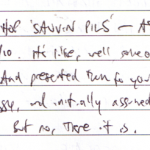 HOF 'SAUVIN PILS' — A
10. It's like, well some
And presented Run for you
, and initially assumed
But no, there it is.